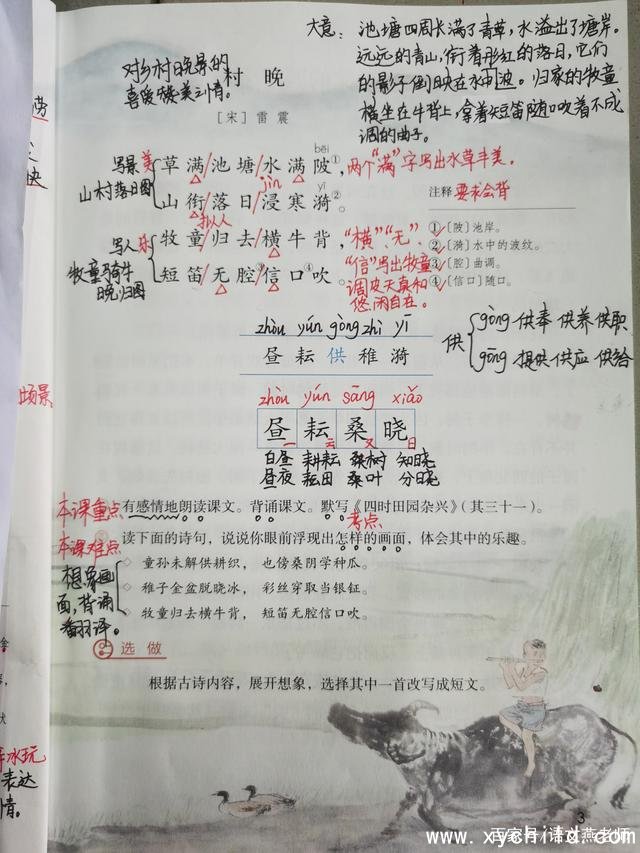 大意：池塘四周长满了青草，水溢出了塘岸。
远远的青山，衔着彤红的落日，它们
的影子倒映在水中波。归家的牧童
横坐在牛背上，拿着短笛随口吹着不成
调的曲子。
对乡村晚景的
喜爱赞美之情。
村晚
［宋］雷震
bēi
写景美
山村落日图
草满/池塘/水满陂①，
两个“满”字写出水草丰美。
jìn
yī
山衔/落日/浸寒漪②。
拟人
注释 要求会背
①〔陂〕池岸。
②〔漪〕水中的波纹。
③〔腔〕曲调。
④〔信口〕随口。
写人乐
牧童骑牛
晚归图
牧童/归去/横牛背，
短笛/无腔③/信口④吹。
“横”、“无”、
“信”写出牧童
调皮天真和
悠闲自在。
zhòu yún gòng zhì yī
昼 耘 供 稚 漪
供
gòng 供奉 供养 供职
gōng 提供 供应 供给
zhòu yún sāng xiǎo
昼 耘 桑 晓
一 云 又 日
白昼 耕耘 桑树 知晓
昼夜 耘田 桑叶 分晓
本课重点
有感情地朗读课文。背诵课文。默写《四时田园杂兴》（其三十一）。
考点
本课难点
读下面的诗句，说说你眼前浮现出怎样的画面，体会其中的乐趣。
想象画
面，背诵
翻译。
◇ 童孙未解供耕织，也傍桑阴学种瓜。
◇ 稚子金盆脱晓冰，彩丝穿取当银钲。
◇ 牧童归去横牛背，短笛无腔信口吹。
选做
根据古诗内容，展开想象，选择其中一首改写成短文。
场景
冰玩
表达
情。
3
www.xychild.com